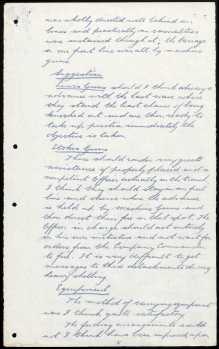 was wholly directed well behind our
lines and practically no casualties
was sustained though a barrage
in our front line usually by machine
guns
Suggestion
Lewis Guns should I think always
advance with the last wave where
they stand the least chance of being
knocked out and are then ready to
take up position immediately the
objective is taken
Stokes Guns
This should under my
assistance of properly placed and a
competent Officer
I think they should
line and chance when the advance
is held up by machine guns and
then direct their fire on that spot. The
Officer in charge should act entirely
on his own initiative and not wait for
orders from the Company Commander
to fire. It is very difficult to get
messages to these detachments during
heavy shelling
Equipment
The method of carrying equipment
was I think quite satisfactory
The feeding arrangements could
not I think have been improved upon